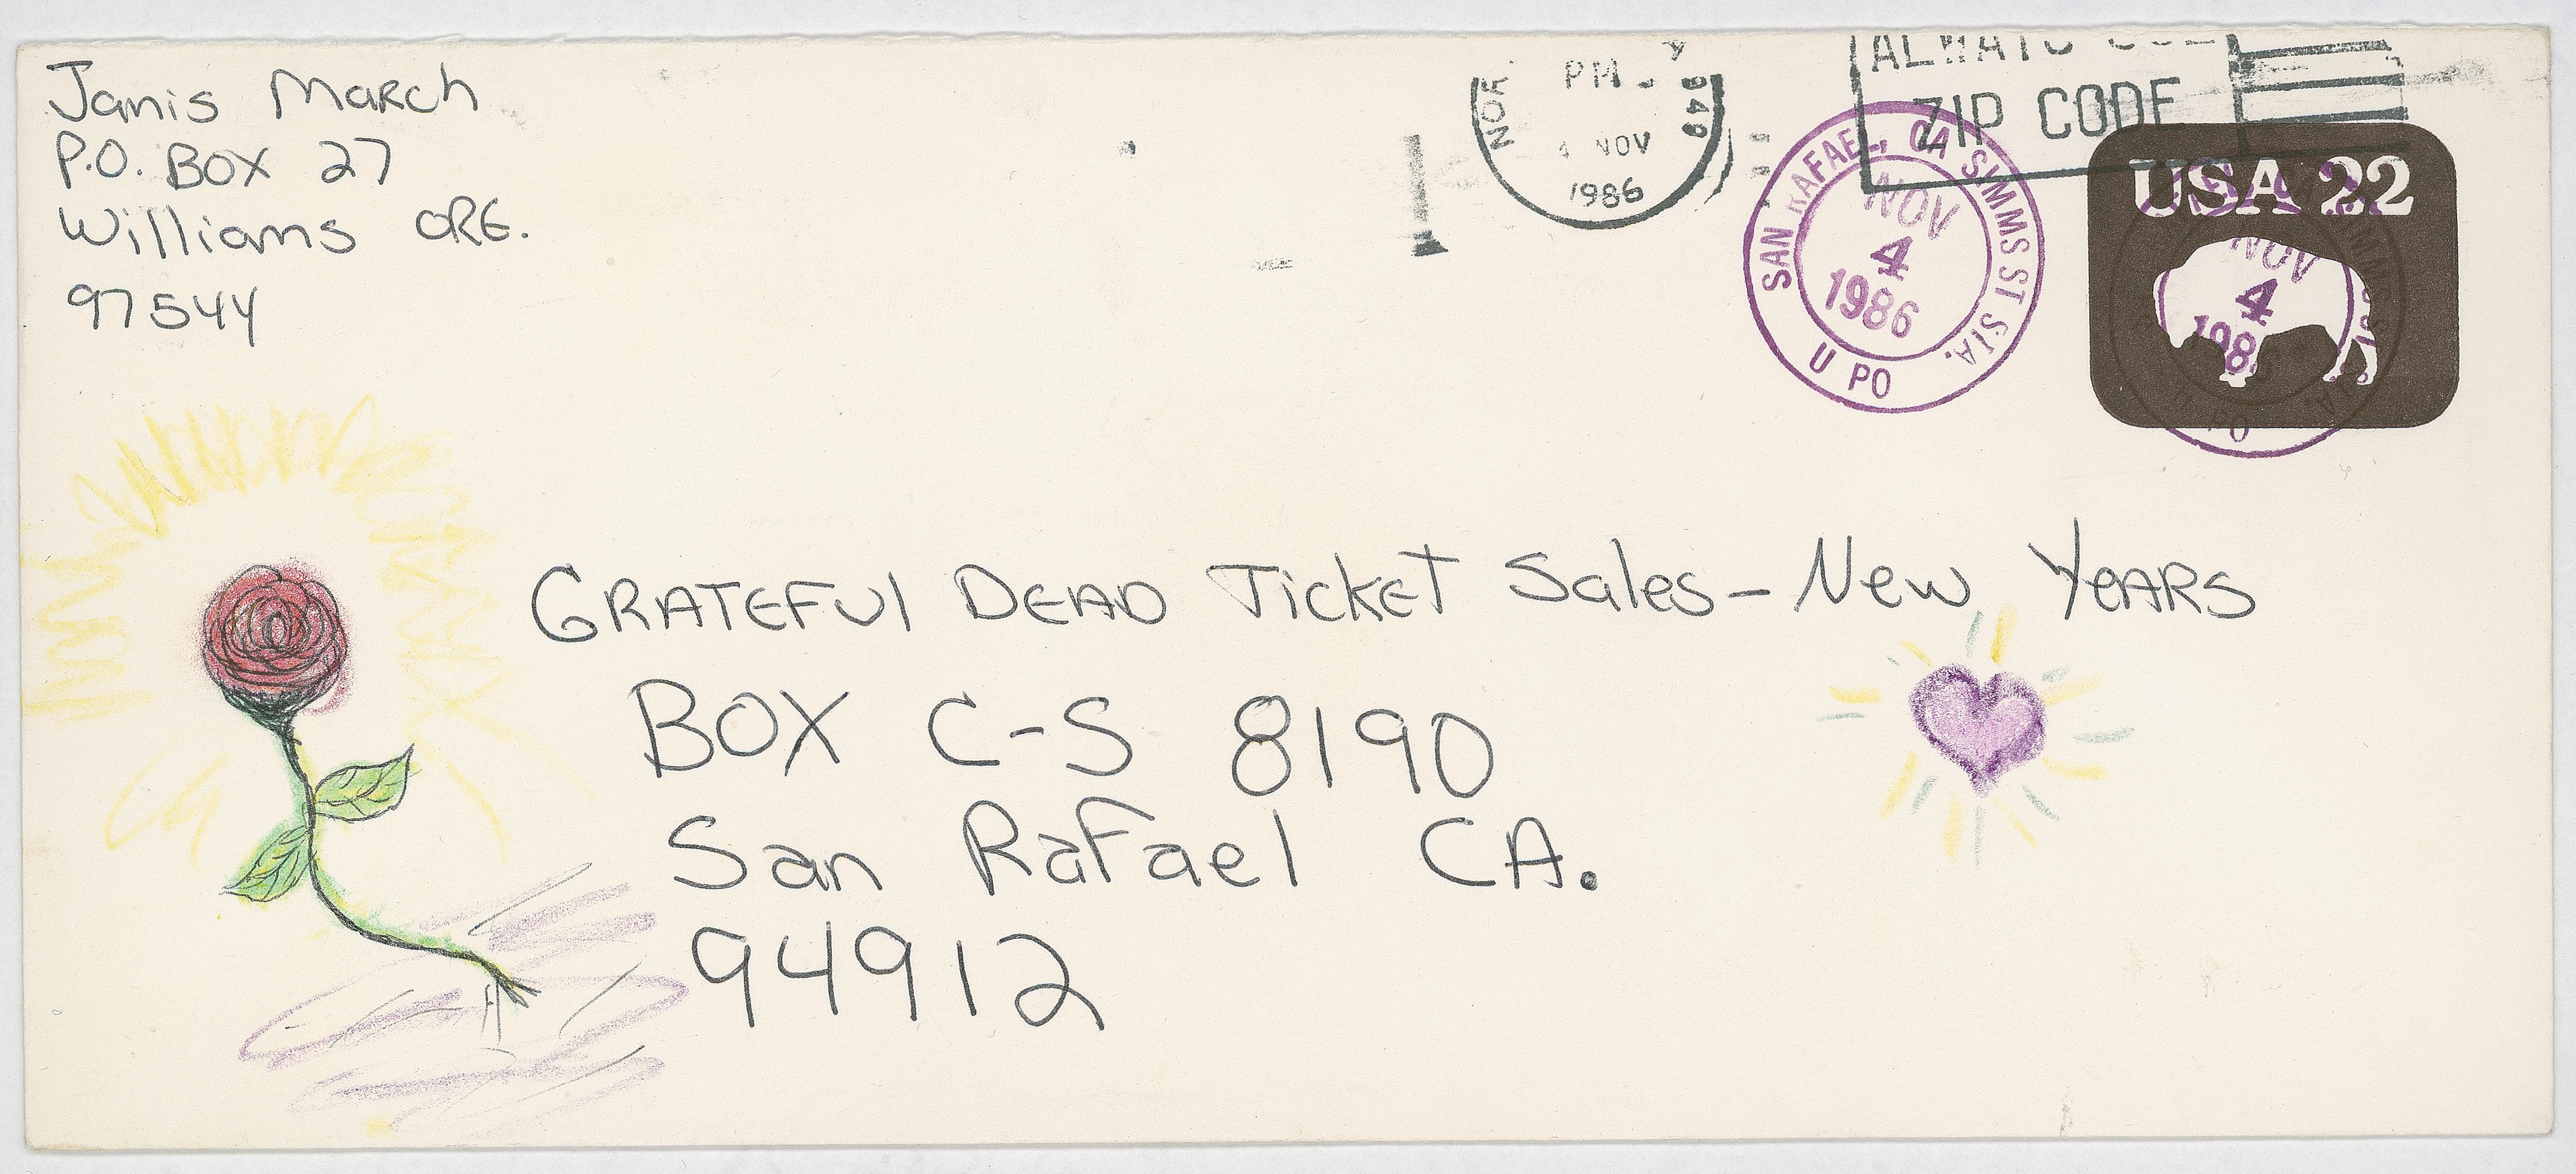 Janis March
P.O. BOX 27
Williams ORG.
97544
PM
NOV
1986
949
ALWAYS USE
ZIP CODE
SAN RAFAEL, CA SIMMS ST STA.
NOV
4
1986
U PO
USA 22
NOV
4
1986
U PO
GRATEFUL DEAD Ticket Sales - New YeARS
BOX C-S 8190
San Rafael CA.
94912